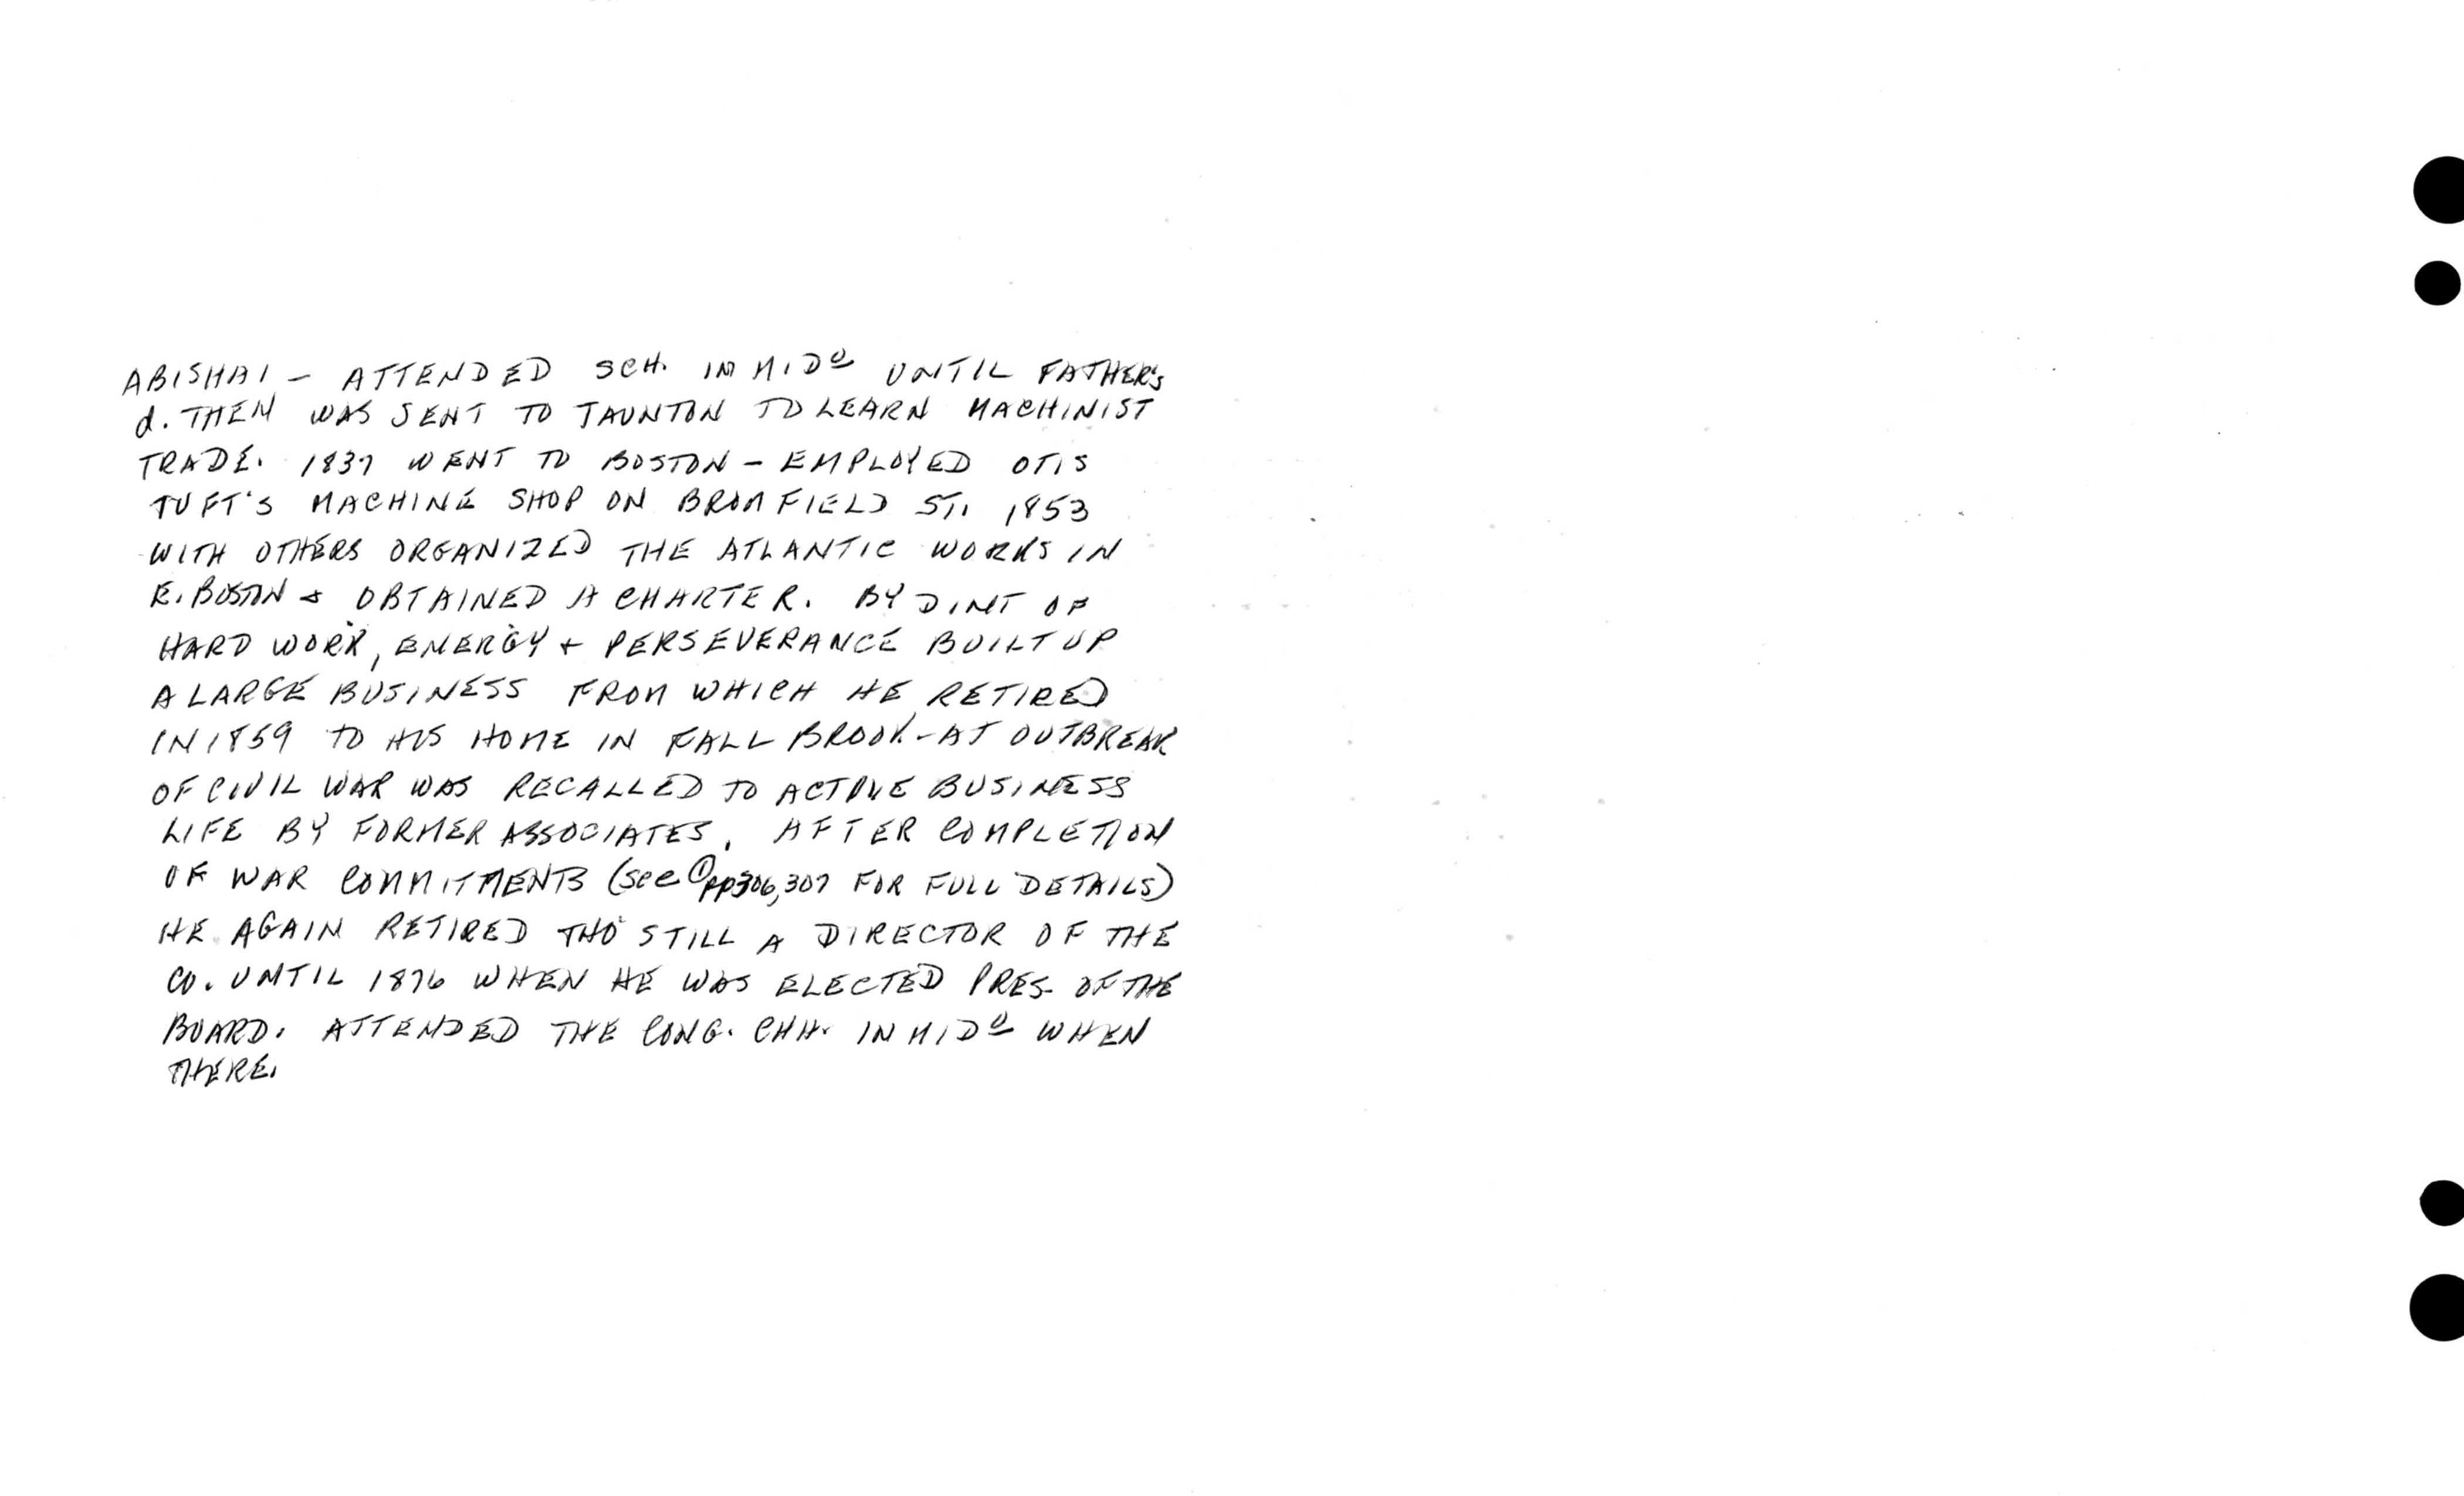 ABISHAI - ATTENDED SCH. IN MIDO UNTIL FATHER'S
d. THEN WAS SENT TO TAUNTON TO LEARN MACHINIST
TRADE. 1837 WENT TO BOSTON - EMPLOYED OTIS
TUFT'S MACHINE SHOP ON BROMFIELD ST. 1853
WITH OTHERS ORGANIZED THE ATLANTIC WORKS IN
E. BOSTON & OBTAINED A CHARTER. BY DINT OF
HARD WORK, ENERGY + PERSEVERANCE BUILT UP
A LARGE BUSINESS FROM WHICH HE RETIRED
IN 1859 TO HIS HOME IN FALL BROOK - AT OUTBREAK
OF CIVIL WAR WAS RECALLED TO ACTIVE BUSINESS
LIFE BY FORMER ASSOCIATES. AFTER COMPLETION
OF WAR COMMITMENTS (see ① pp306,307 FOR FULL DETAILS)
HE AGAIN RETIRED THO' STILL A DIRECTOR OF THE
CO. UNTIL 1876 WHEN HE WAS ELECTED PRES. OF THE
BOARD. ATTENDED THE CONG. CHH. IN MIDO WHEN
THERE.